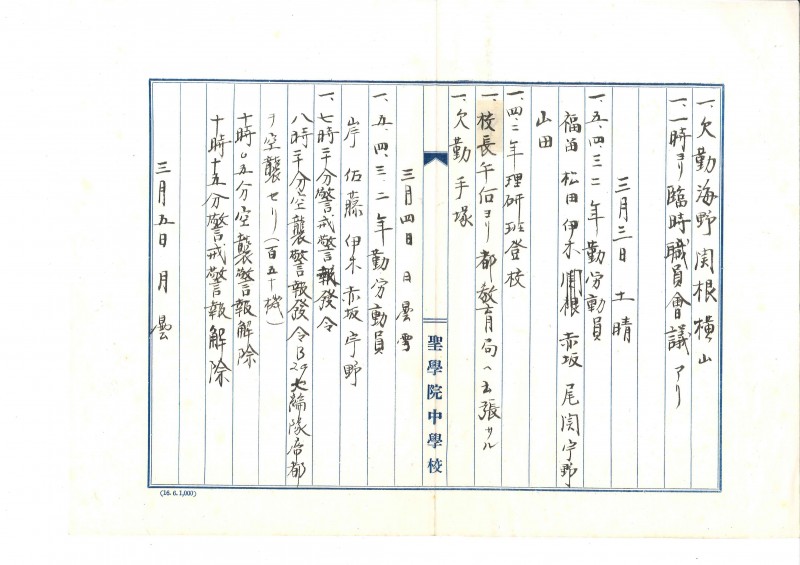 一、欠勤海野 関根 横山
一、一時ヨリ臨時職員會議アリ
三月三日 土 晴
一、五、四、三、二年勤労動員
福苗 松田 伊木 関根 赤坂 尾関 宇野
山田
一、四、二年理研班登校
一、校長午后ヨリ都教育局ヘ出張サル
一、欠勤 手塚
聖學院中學校
三月四日 日 曇雪
一、五、四、三、二年勤労動員
岸 佐藤 伊木 赤坂 宇野
一、七時三十分警戒警報發令
八時二十分空襲警報發令B29大編隊帝都
ヲ空襲セリ(百五十機)
十時〇五分空襲警報解除
十時十五分警戒警報解除
三月五日 月 曇
(16.6.1,000)